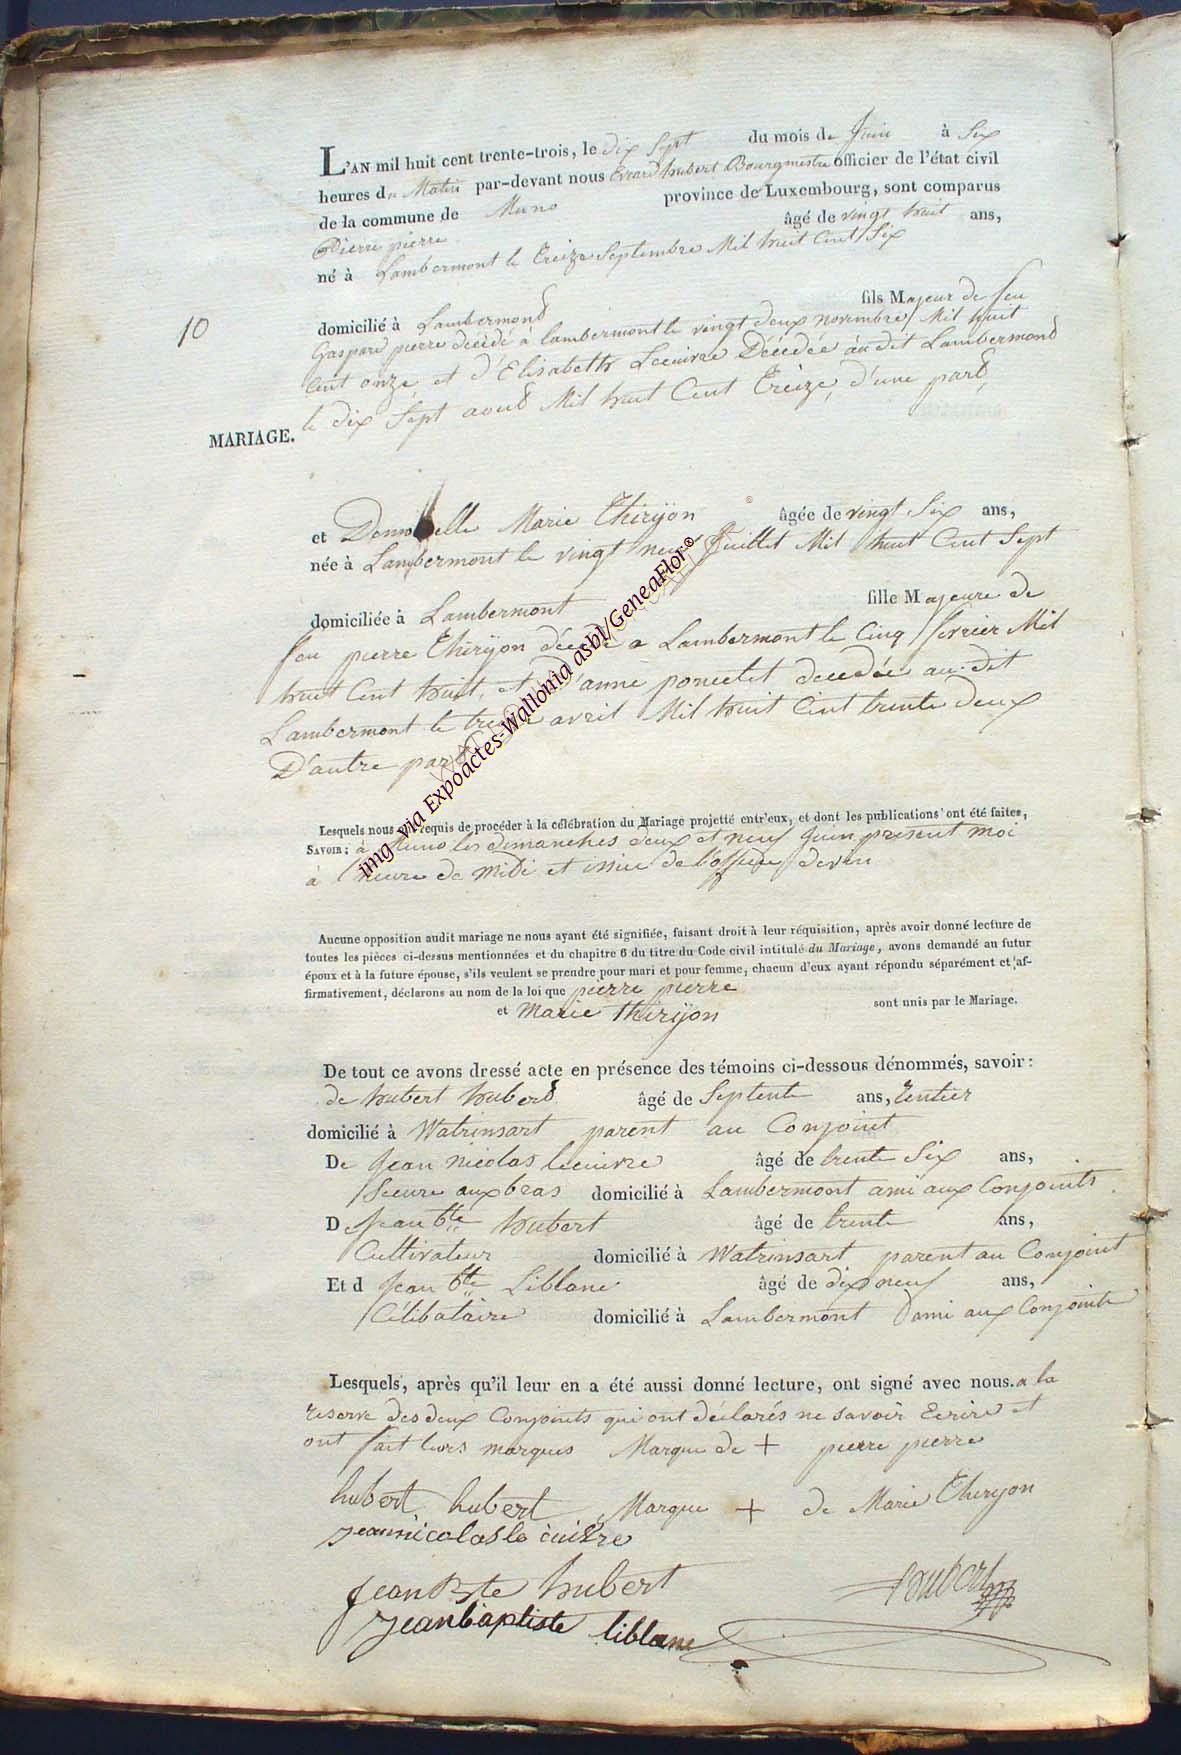 L'AN mil huit cent trente-trois, le dix Sept du mois de Juin à Six
heures du Matin par-devant nous Evrard hubert Bourgmestre officier de l'état civil
de la commune de Muno province de Luxembourg, sont comparus
Pierre pierre âgé de vingt huit ans,
né à Lambermont le Treize Septembre Mil huit Cent Six
10
domicilié à Lambermont fils Majeur de feu
Gaspard pierre décédé à lambermont le vingt deux novembre Mil huit
Cent onze, et d'Elisabeth Lecuivre Décédée audit Lambermont
le dix Sept aout Mil huit Cent Treize, d'une part
MARIAGE.
et Demoiselle Marie Thiryon âgée de vingt Six ans,
née à Lambermont le vingt neuf Juillet Mil huit Cent Sept
domiciliée à Lambermont fille Majeure de
feu pierre Thiryon décédé a Lambermont le Cinq fevrier Mil
huit Cent huit, et d'anne poncelet decedée au dit
Lambermont le treize avril Mil huit Cent trente deux
D'autre part
Lesquels nous ont requis de procéder à la célébration du Mariage projetté entr'eux, et dont les publications ont été faites,
SAVOIR : à Muno les dimanches deux et neuf Juin present moi
à l'heure de midi et issue de l'office divin
Aucune opposition audit mariage ne nous ayant été signifiée, faisant droit à leur réquisition, après avoir donné lecture de
toutes les pièces ci-dessus mentionnées et du chapitre 6 du titre du Code civil intitulé du Mariage, avons demandé au futur
époux et à la future épouse, s'ils veulent se prendre pour mari et pour femme, chacun d'eux ayant répondu séparément et af-
firmativement, déclarons au nom de la loi que pierre pierre
et Marie thiryon sont unis par le Mariage.
De tout ce avons dressé acte en présence des témoins ci-dessous dénommés, savoir :
de hubert hubert âgé de Septente ans, rentier
domicilié à Watrinsart parent au Conjoint
De Jean nicolas lecuivre âgé de trente Six ans,
domicilié à Lambermont ami aux Conjoints
D Jean bte hubert âgé de trente ans,
Cultivateur domicilié à Watrinsart parent au Conjoint
Et d Jean bte Liblanc âgé de dix neuf ans,
Célibataire domicilié à Lambermont ami aux Conjoints
Lesquels, après qu'il leur en a été aussi donné lecture, ont signé avec nous. a la
reserve des deux Conjoints qui ont déclarés ne savoir Ecrire et
ont fait leurs marques Marque de + pierre pierre
hubert hubert Marque + de Marie Thiryon
jeannicolas le cuivre
jean Bte hubert hubert
jeanbaptiste liblanc
img via Expoactes-Wallonia asbl/GeneaFlor©
©